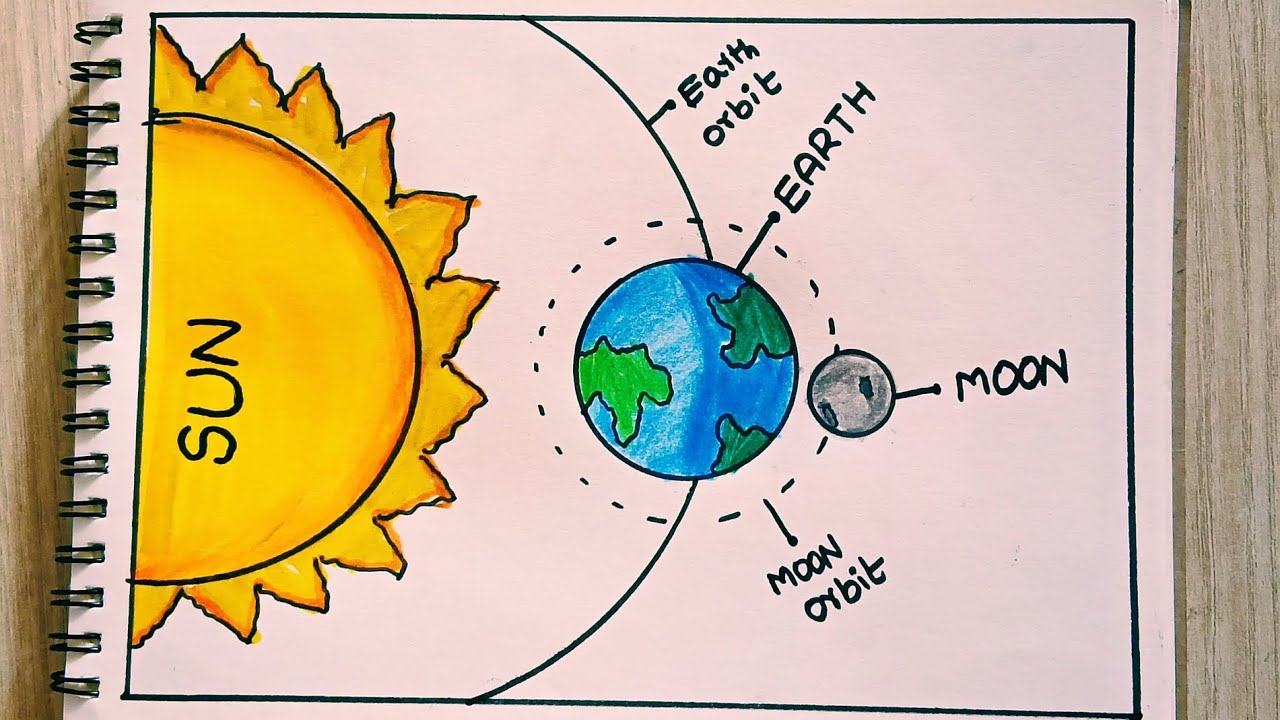 Earth
orbit
EARTH
SUN
MOON
MOON
orbit